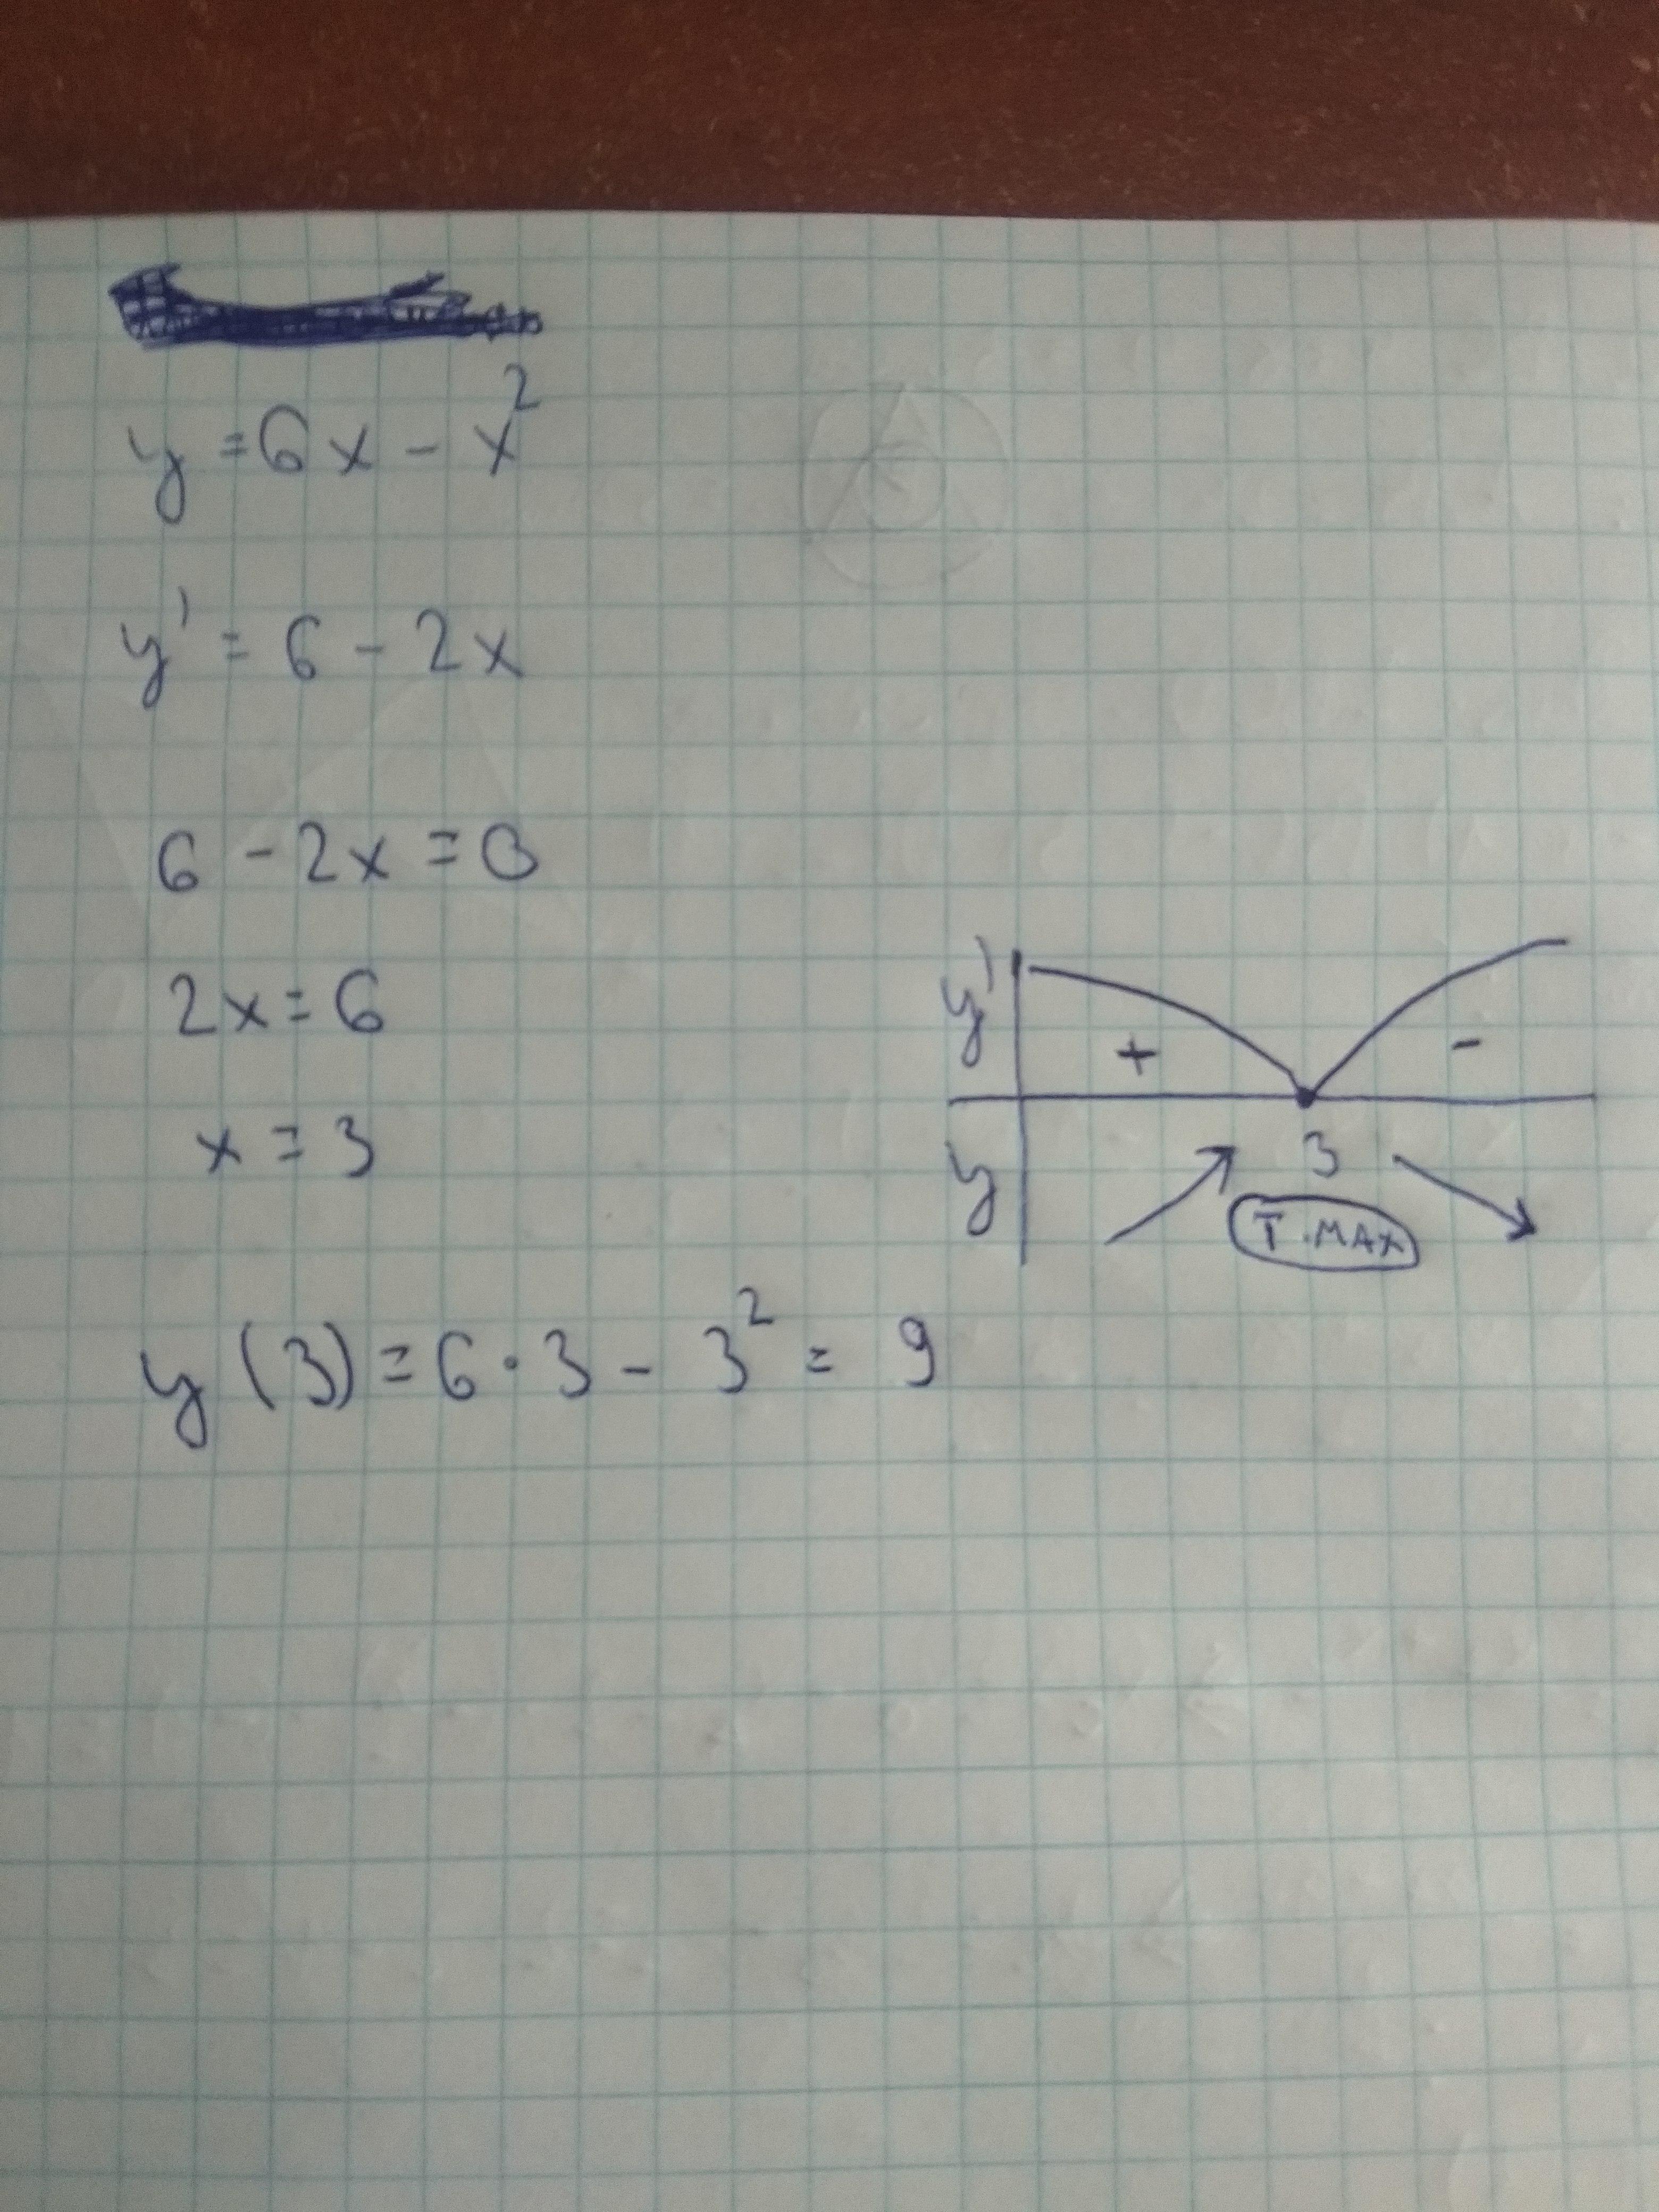 y = 6x - x²
y' = 6 - 2x
6 - 2x = 0
2x = 6
x = 3
y' + -
y 3
T. MAX
y(3) = 6 · 3 - 3² = 9